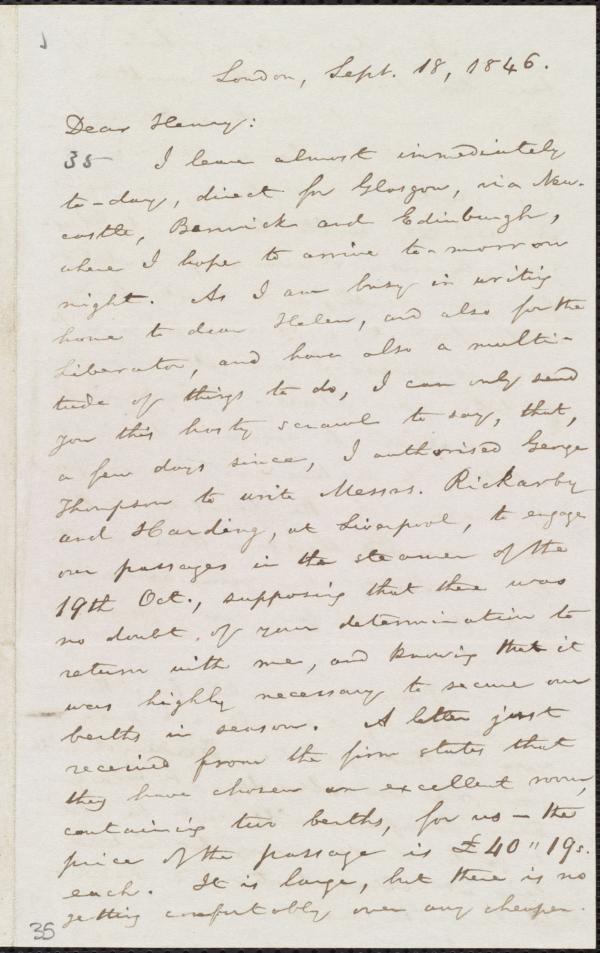 London, Sept. 18, 1846.
Dear Henry:
35 I leave almost immediately
to-day, direct for Glasgow, via New-
castle, Berwick and Edinburgh,
where I hope to arrive to-morrow
night. As I am busy in writing
home to dear Helen, and also for the
Liberator, and have also a multi-
tude of things to do, I can only send
you this hasty scrawl to say, that,
a few days since, I authorised George
Thompson to write Messrs. Rickarby
and Harding, at Liverpool, to engage
our passages in the steamer of the
19th Oct., supposing that there was
no doubt of your determination to
return with me, and knowing that it
was highly necessary to secure our
berths in season. A letter just
received from the firm states that
they have chosen an excellent room,
containing two berths, for us — the
price of the passage is £40 " 19s.
each. It is large, but there is no
getting comfortably over any cheaper.
35